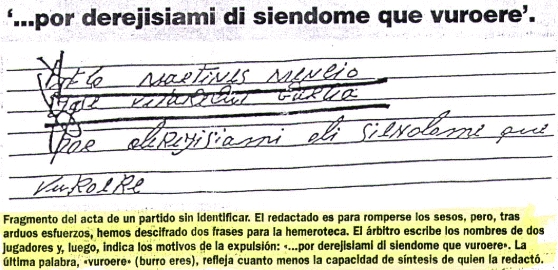 ‘...por derejisiami di siendome que vuroere’.
MARTINES
por derejisiami di siendome que
vuroere
Fragmento del acta de un partido sin identificar. El redactado es para romperse los sesos, pero, tras
arduos esfuerzos, hemos descifrado dos frases para la hemeroteca. El árbitro escribe los nombres de dos
jugadores y, luego, indica los motivos de la expulsión: «...por derejisiami di siendome que vuroere». La
última palabra, «vuroere» (burro eres), refleja cuanto menos la capacidad de síntesis de quien la redactó.